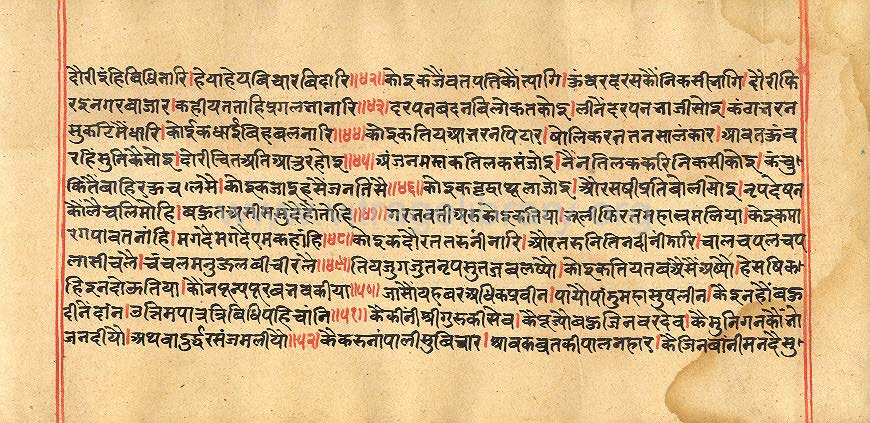 दौरी इंहि बिधि नारि। हेयाहेय बिचार बिदारि॥४२॥ कोइक जैंवत पति कौं त्यागि। कुंवर दरस कौं निकसी लागि। दौरी फि
रइ नगर बाजार। कही यतनाहि पुगल जानारि॥४३॥ दरपन बदन बिलोकत कोइ। लीनैं दरपन चाली सोइ। कंठाभरन
सुकटि मैं धारि। कोईक धाई बिहबल नारि॥४४॥ कोइक तिय आभरन पिटार। षोलि करत तन सालंकार। आवत कुंव
रहिं सुनि कै सोइ। दौरी चित अति आतुर होइ॥४५॥ अंजन तिलक संजोइ। नैंन तिलक करि निकसी कोइ। कंचु
कि तैं बाहिर कुच लसै। कोइक जाइ हसैं जन तिसै॥४६॥ कोइक लाजोइ। और सषी प्रति बोली सोइ। नृप देषन
कौं लै चलि मोहि। बहुत असीस मैं देहौं तोहि॥४७॥ गरभवती कोइक तिया। चली फिरत महा श्रम लिया। केइक मा
रग पावत नांहि। मग दै मग दै एम कहांहि॥४८॥ कोइक दौरत तरुनी नारि। और तरुनि तिन दीनी डारि। चाल चपल चप
लासी चलै। चंचल मनु जल बीची रलै॥४९॥ तिय जुग जुत नृप सुत जब लष्यौ। कोइक तिय तब अैसैं अष्यौ। हे सषि क
हि इन दो तिया। कौन पुन्य पूरब भव कीया॥५०॥ जासौं यह बर अधिक प्रबीन। पायौ पति महा सुष लीन। कै इनहौं बहु
दीनैं दांन। उत्तिम पात्र त्रिबिधि पहिचांनि॥५१॥ कै कीनी श्री गुरु की सेव। कै पूज्यौ बहु जिनवर देव। कै मुनिगन कौं भो
जन दीयौ। अथवा दुर्द्धर संजम लीयौ॥५२॥ कै करुनां पाली सुबिचार। श्रावक ब्रत की पालनहार। कै जिनबांनी मन दे सु